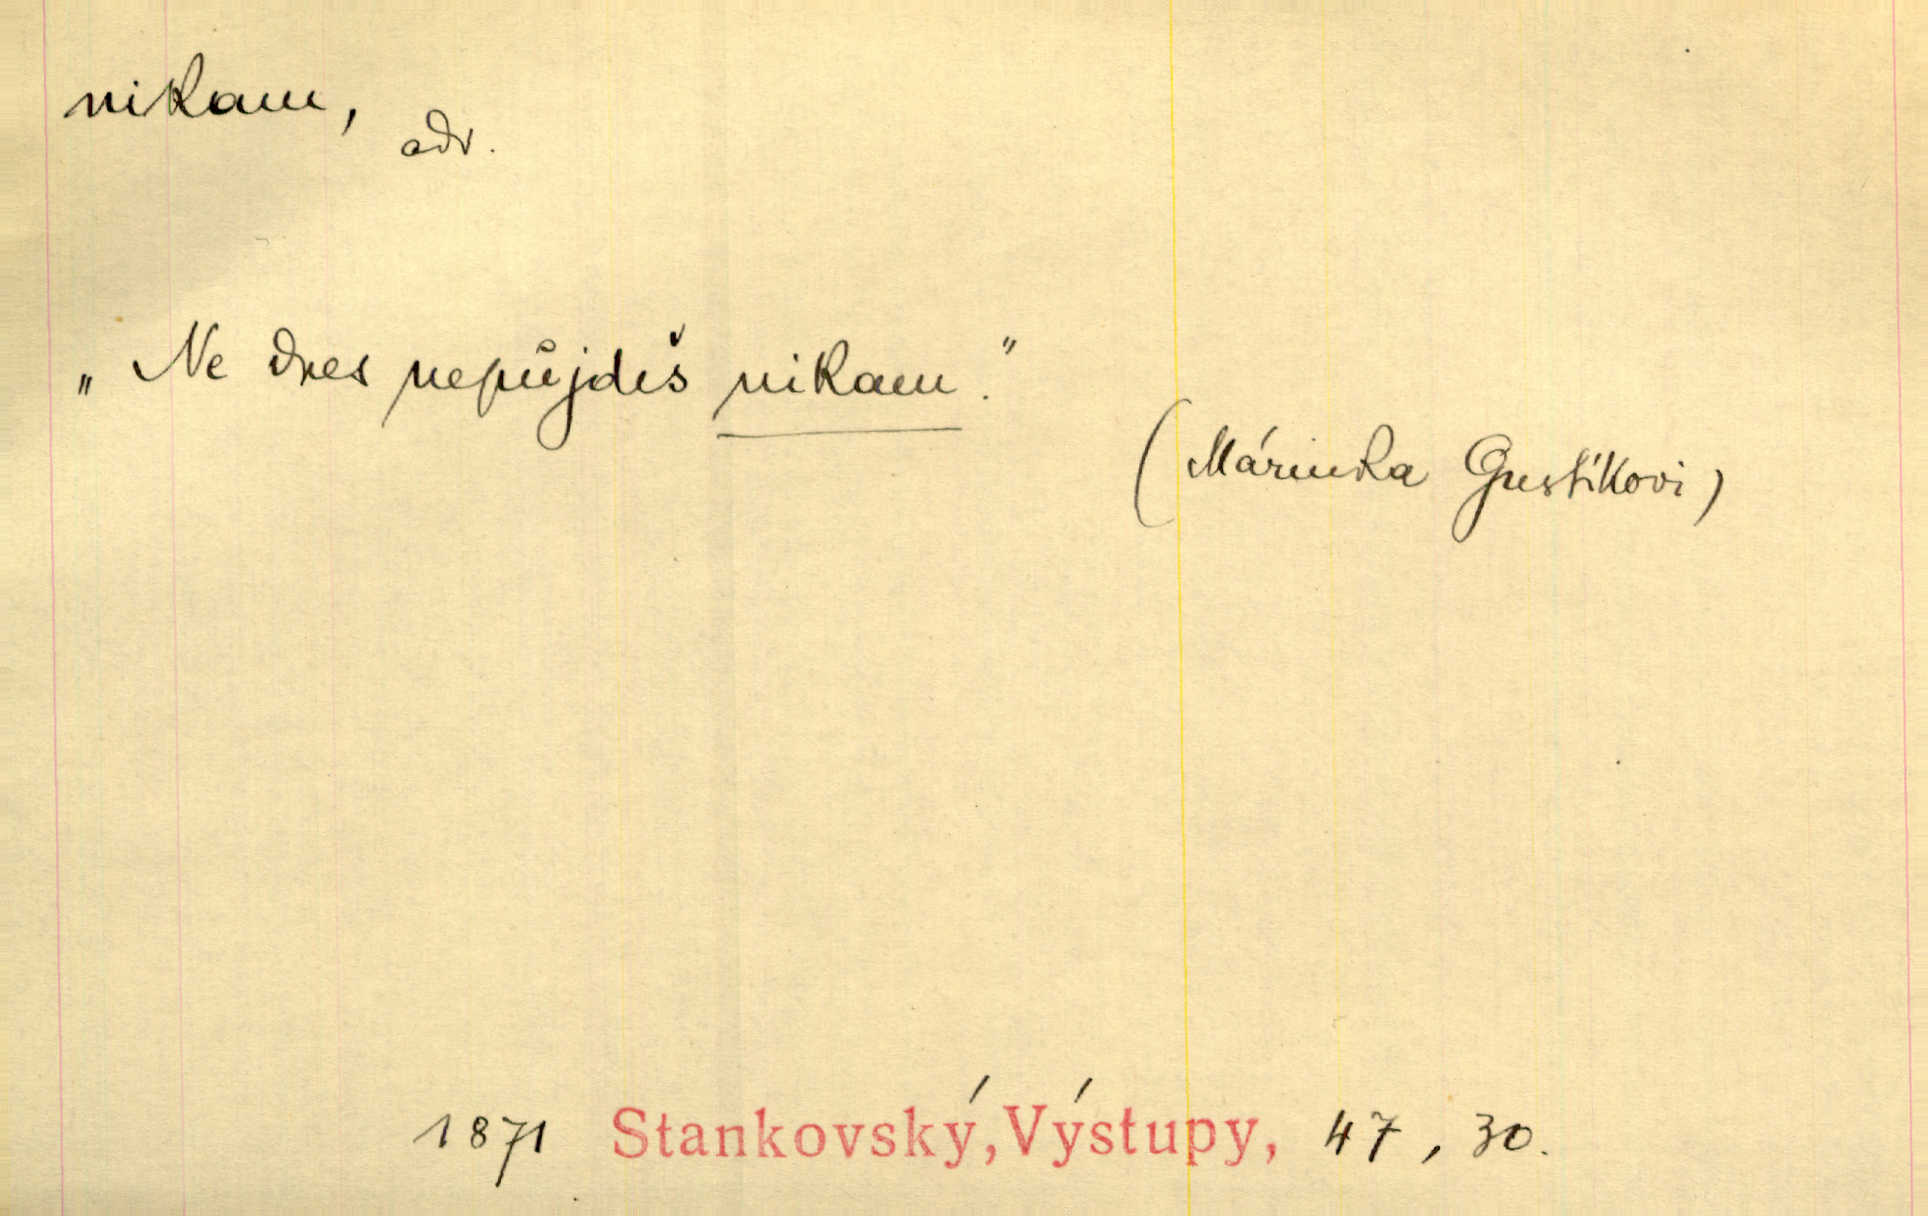 nikam,
adv.
„Ne dnes nepůjdeš nikam."
(Márinka Gustíkovi)
1871 Stankovský, Výstupy, 47, 30.